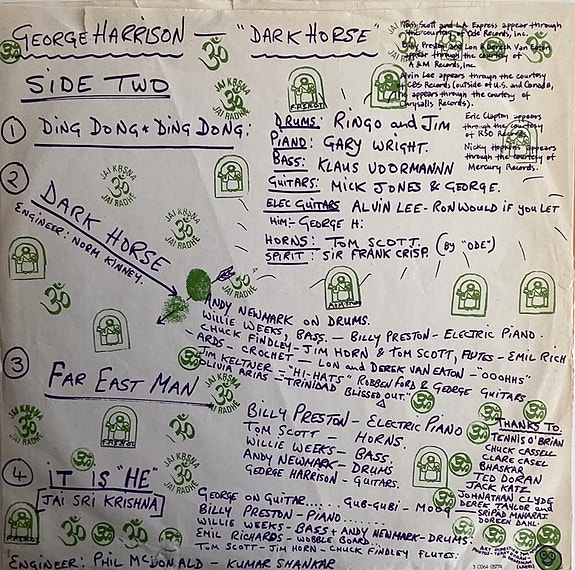 GEORGE HARRISON - "DARK HORSE"
Tom Scott and L.A. Express appear through
the courtesy of Ode Records, Inc.
Billy Preston and Lon & Derek Van Eaton
appear through the courtesy of
A & M Records, Inc.
Alvin Lee appears through the courtesy
of CBS Records (outside of U.S. and Canada,
he appears through the courtesy of
Chrysalis Records).
Eric Clapton appears
through the courtesy
of RSO Records.
Nicky Hopkins appears
through the courtesy of
Mercury Records.
SIDE TWO
1 DING DONG * DING DONG:
DRUMS: RINGO and JIM
PIANO: GARY WRIGHT.
BASS: KLAUS VOORMANN
GUITARS: MICK JONES & GEORGE.
ELEC GUITARS ALVIN LEE - RON WOULD IF YOU LET
HIM:- GEORGE H:
HORNS: TOM SCOTT. (BY "ODE")
SPIRIT: SIR FRANK CRISP.
2 DARK HORSE
ENGINEER: NORM KINNEY.
ANDY NEWMARK ON DRUMS.
WILLIE WEEKS, BASS. - BILLY PRESTON - ELECTRIC PIANO.
CHUCK FINDLEY - JIM HORN & TOM SCOTT, FLUTES - EMIL RICH
-ARDS - CROCHET - LON and DEREK VAN EATON - "OOOHHS"
JIM KELTNER - "HI-HATS" ROBBEN FORD & GEORGE GUITARS
OLIVIA ARIAS - "TRINIDAD BLISSED OUT."
3 FAR EAST MAN
BILLY PRESTON - ELECTRIC PIANO
TOM SCOTT - HORNS
WILLIE WEEKS - BASS.
ANDY NEWMARK - DRUMS
GEORGE HARRISON - GUITARS.
4 IT IS "HE"
JAI SRI KRISHNA
GEORGE ON GUITAR..... GUB-GUBI - MOOG
BILLY PRESTON - PIANO.....
WILLIE WEEKS - BASS + ANDY NEWMARK - DRUMS.
EMIL RICHARDS - WOBBLE BOARD.
TOM SCOTT - JIM HORN - CHUCK FINDLEY FLUTES.
ENGINEER: PHIL McDONALD - KUMAR SHANKAR
THANKS TO
TENNIS O'BRIAN
CHUCK CASSELL
CLARE CASEL
BHASKAR
TED DORAN
JACK KATZ
JOHNATHAN CLYDE
DEREK TAYLOR and
SRIPAD MAHARAJ.
DOREEN DAHL.
JAI KRSNA
ॐ
JAI RADHE